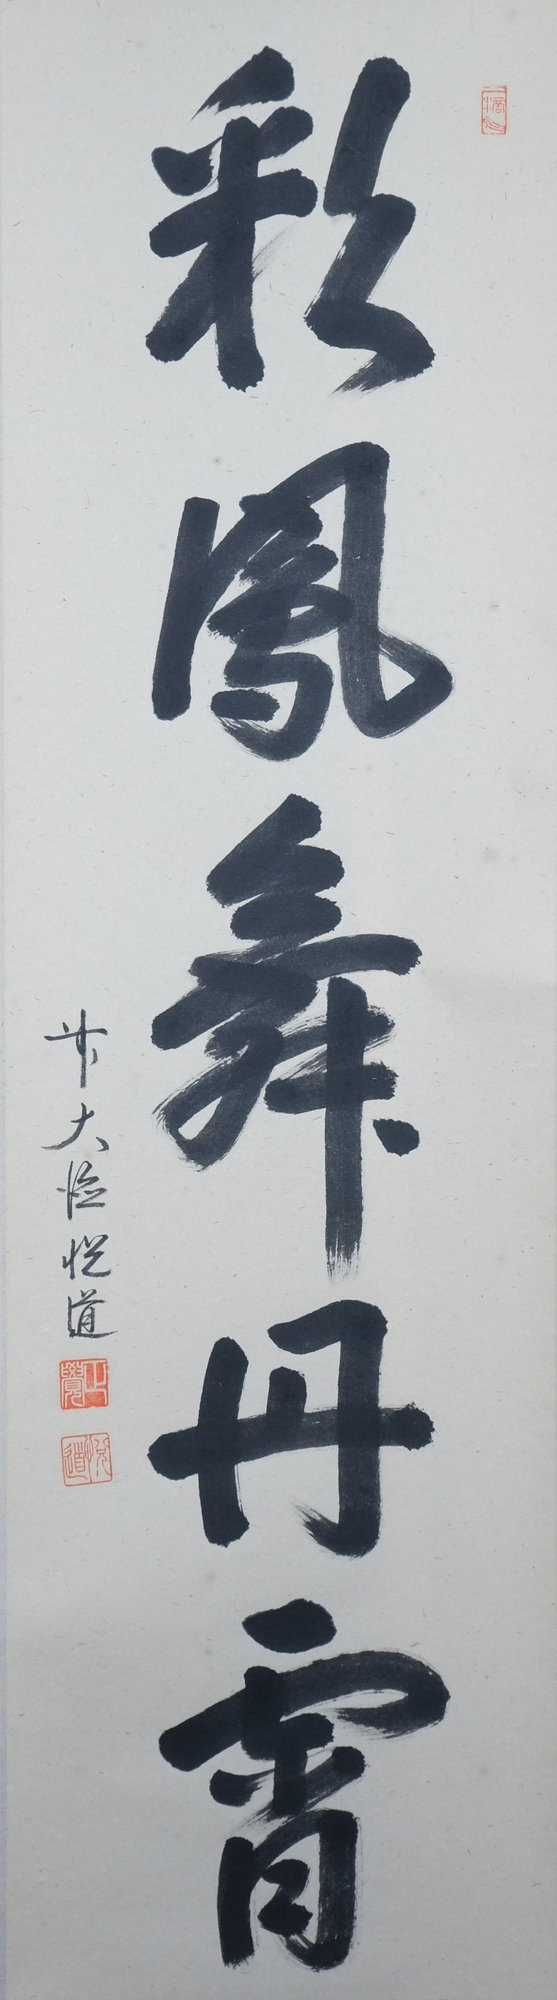 彩鳳舞丹霄
前大徳悦道